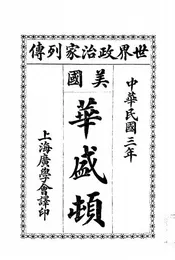 世界政治家列傳
中華民國三年
美國
華盛頓
上海廣學會譯印